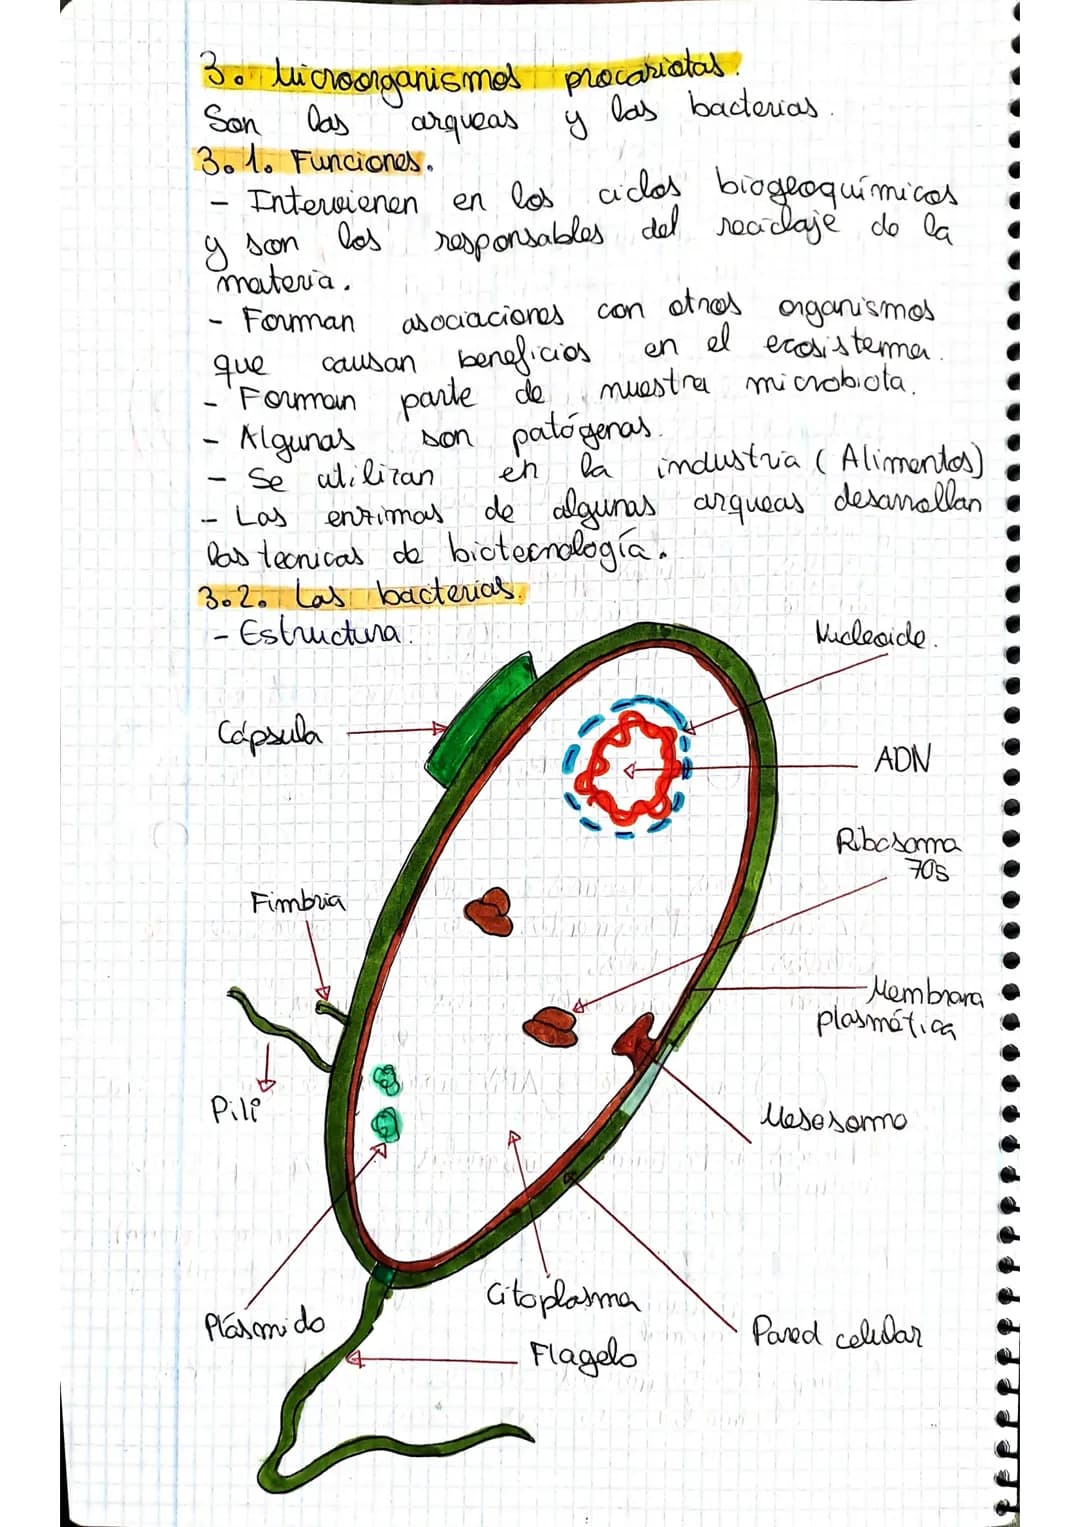 3. Microorganismos procariotas.
Son las arqueas y las bacterias.
3.1. Funciones.
- Intervienen en los ciclos biogeoquímicos
y son los responsables del reciclaje de la
materia.
- Forman asociaciones con otros organismos
que causan beneficios en el ecosistema.
- Forman parte de nuestra microbiota.
- Algunas son patógenas.
- Se utilizan en la industria (Alimentos)
- Las enzimas de algunas arqueas desarrollan
las tecnicas de biotecnología.
3.2. Las bacterias.
- Estructura.
Nucleoide.
Cápsula
ADN
Ribosoma
70S
Fimbria
Membrana
plasmática
Pili
Mesosoma
Citoplasma
Plásmido
Pared celular
Flagelo